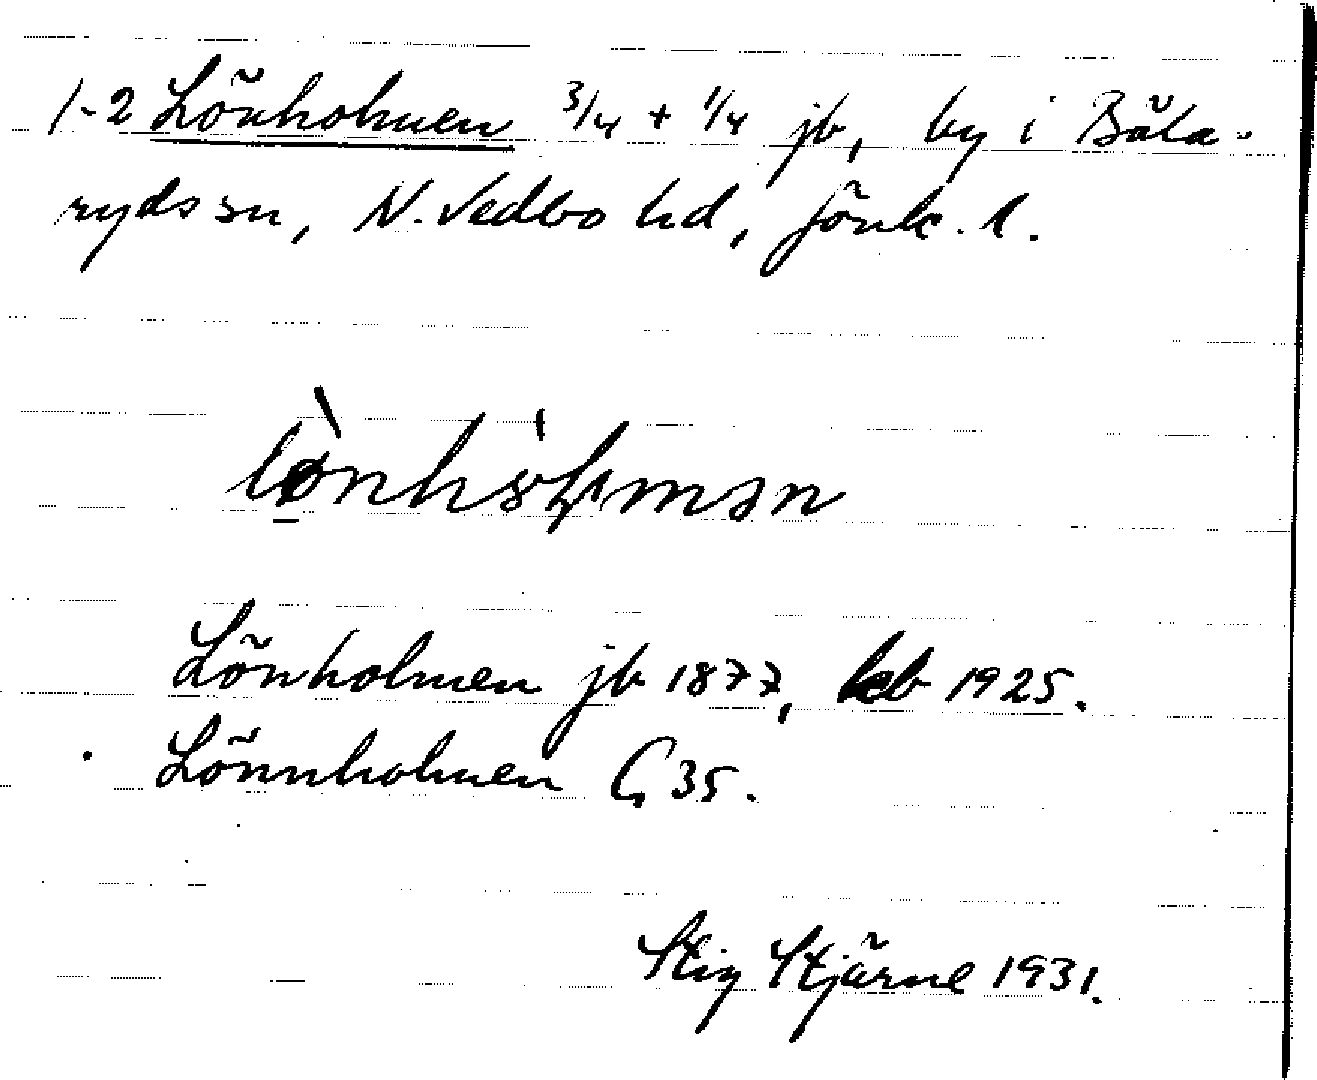 1-2 Lönholmen 3/4 + 1/4 jb, by i Båla-
ryds sn, N. Vedbo hd, Jönk. l.
Lönholmen jb 1877, kb 1925.
Lönnholmen G 35.
Stig Stjärne 1931.